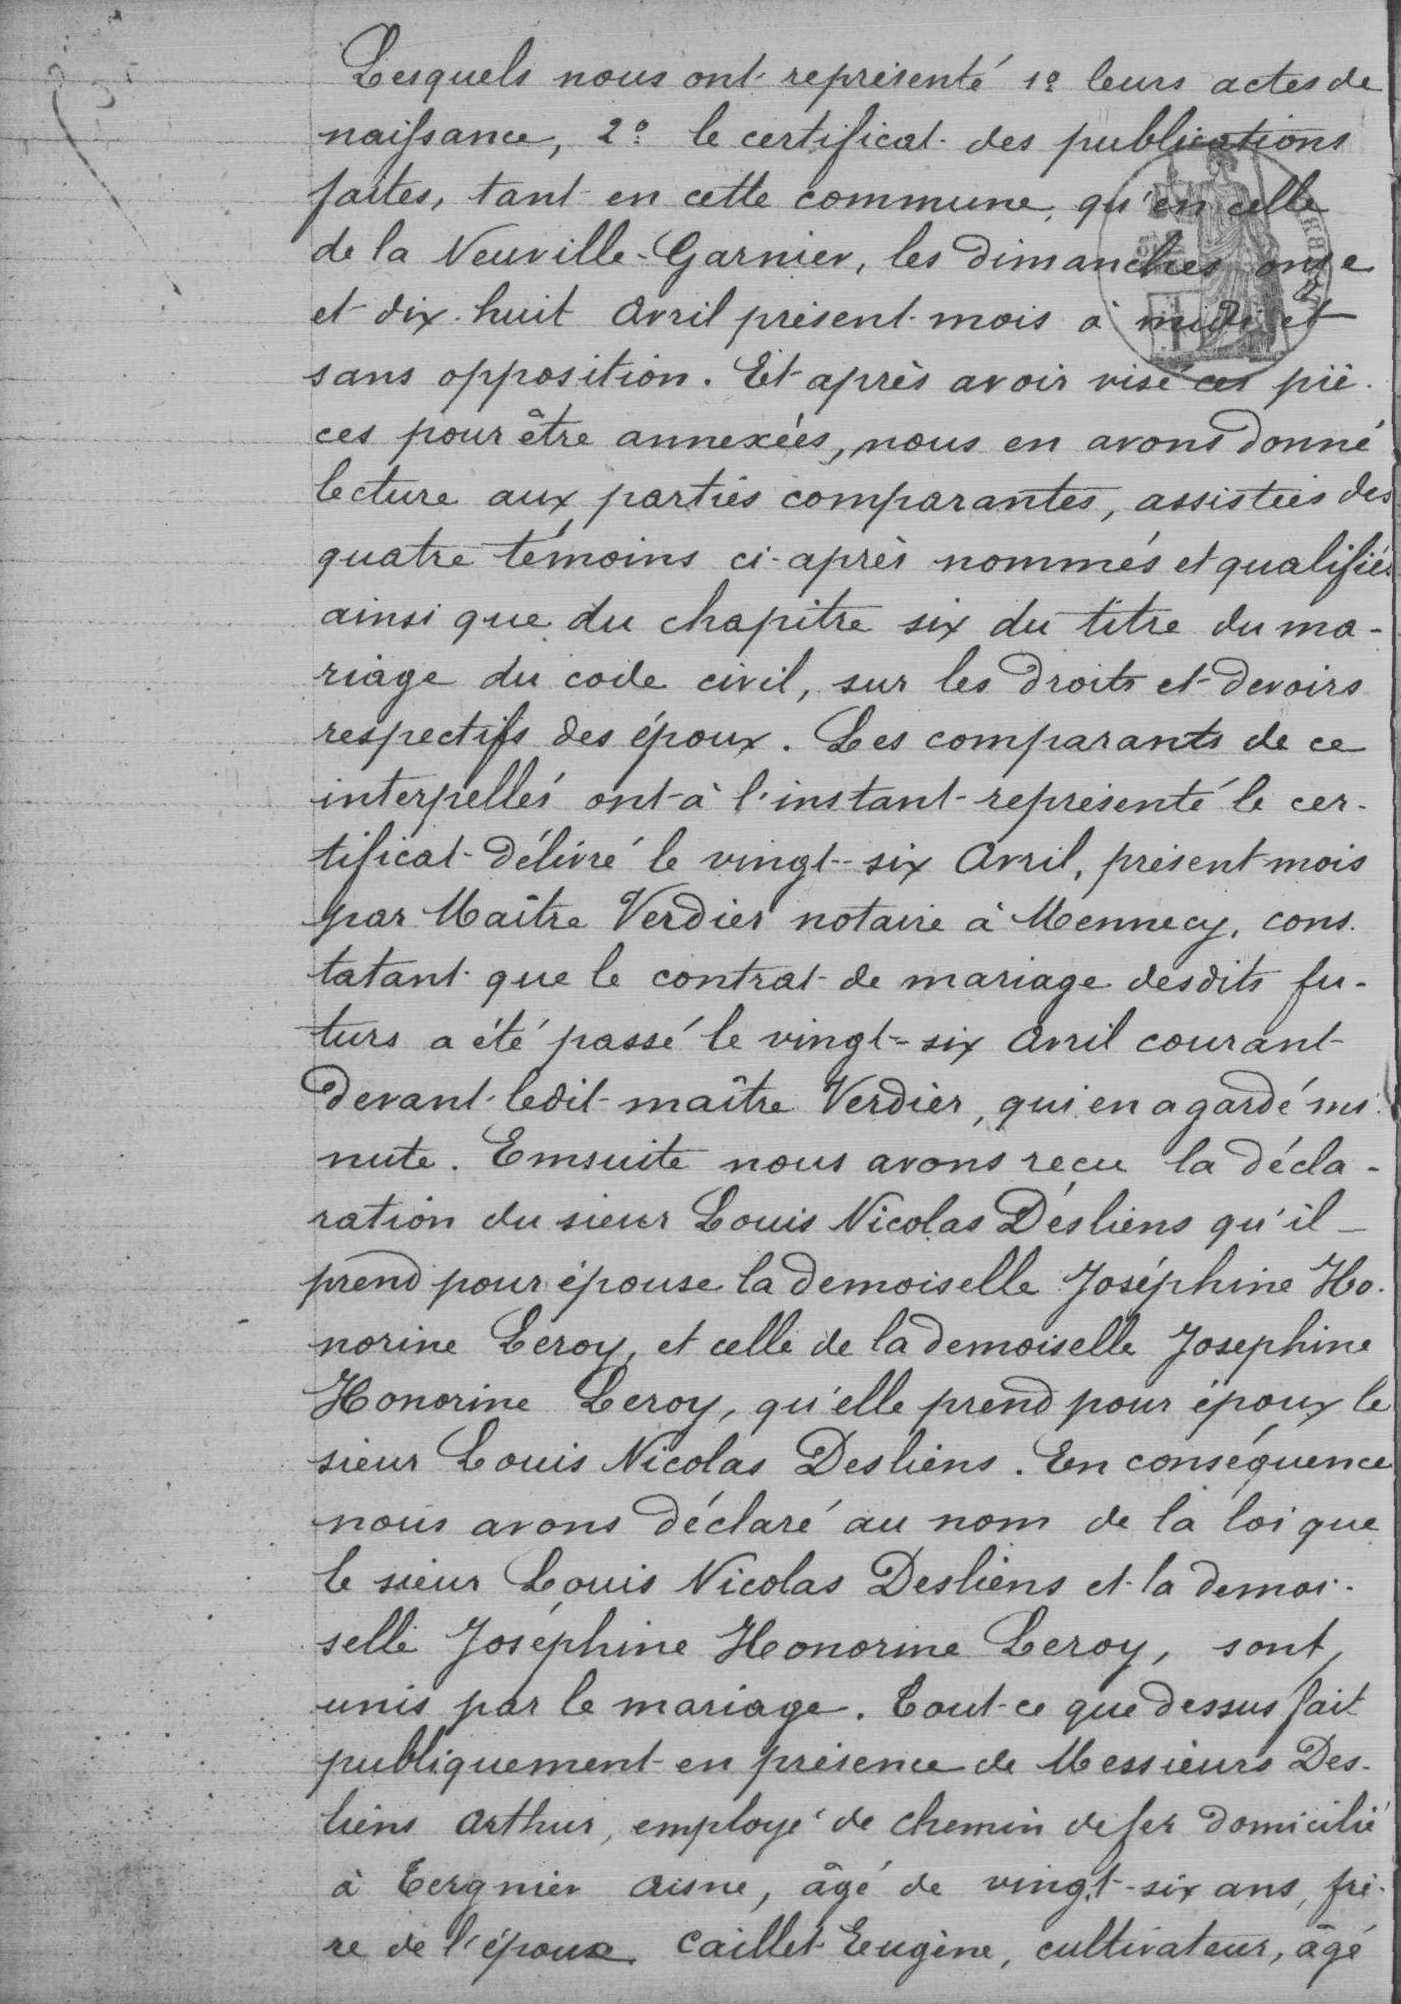 Lesquels nous ont représenté 1º leurs actes de
naissance, 2º le certificat des publications
faites, tant en cette commune, qu'en celle
de la Neuville-Garnier, les dimanches onze
et dix huit Avril présent mois à midi et
sans opposition. Et après avoir visé ces piè-
ces pour être annexées, nous en avons donné
lecture aux parties comparantes, assistées des
quatre témoins ci-après nommés et qualifiés
ainsi que du chapitre six du titre du ma-
riage du code civil, sur les droits et devoirs
respectifs des époux. Les comparants de ce
interpellés ont à l'instant représenté le cer-
tificat délivré le vingt-six Avril, présent mois
par Maître Verdier notaire à Mennecy, cons-
tatant que le contrat de mariage desdits fu-
turs a été passé le vingt-six Avril courant
devant ledit maître Verdier, qui en a gardé mi-
nute. Emsuite nous avons reçu la décla-
ration du sieur Louis Nicolas Desliens qu'il
prend pour épouse la demoiselle Joséphine Ho-
norine Leroy, et celle de la demoiselle Josephine
Honorine Leroy, qu'elle prend pour époux le
sieur Louis Nicolas Desliens. En conséquence
nous avons déclaré au nom de la loi que
le sieur Louis Nicolas Desliens et la demoi-
selle Joséphine Honorine Leroy, sont
unis par le mariage. Tout ce que dessus fait
publiquement en présence de Messieurs Des-
liens Arthur, employé de chemin de fer domicilié
à Tergnier Aisne, âgé de vingt-six ans, frè-
re de l'époux Caillet Eugène, cultivateur, âgé